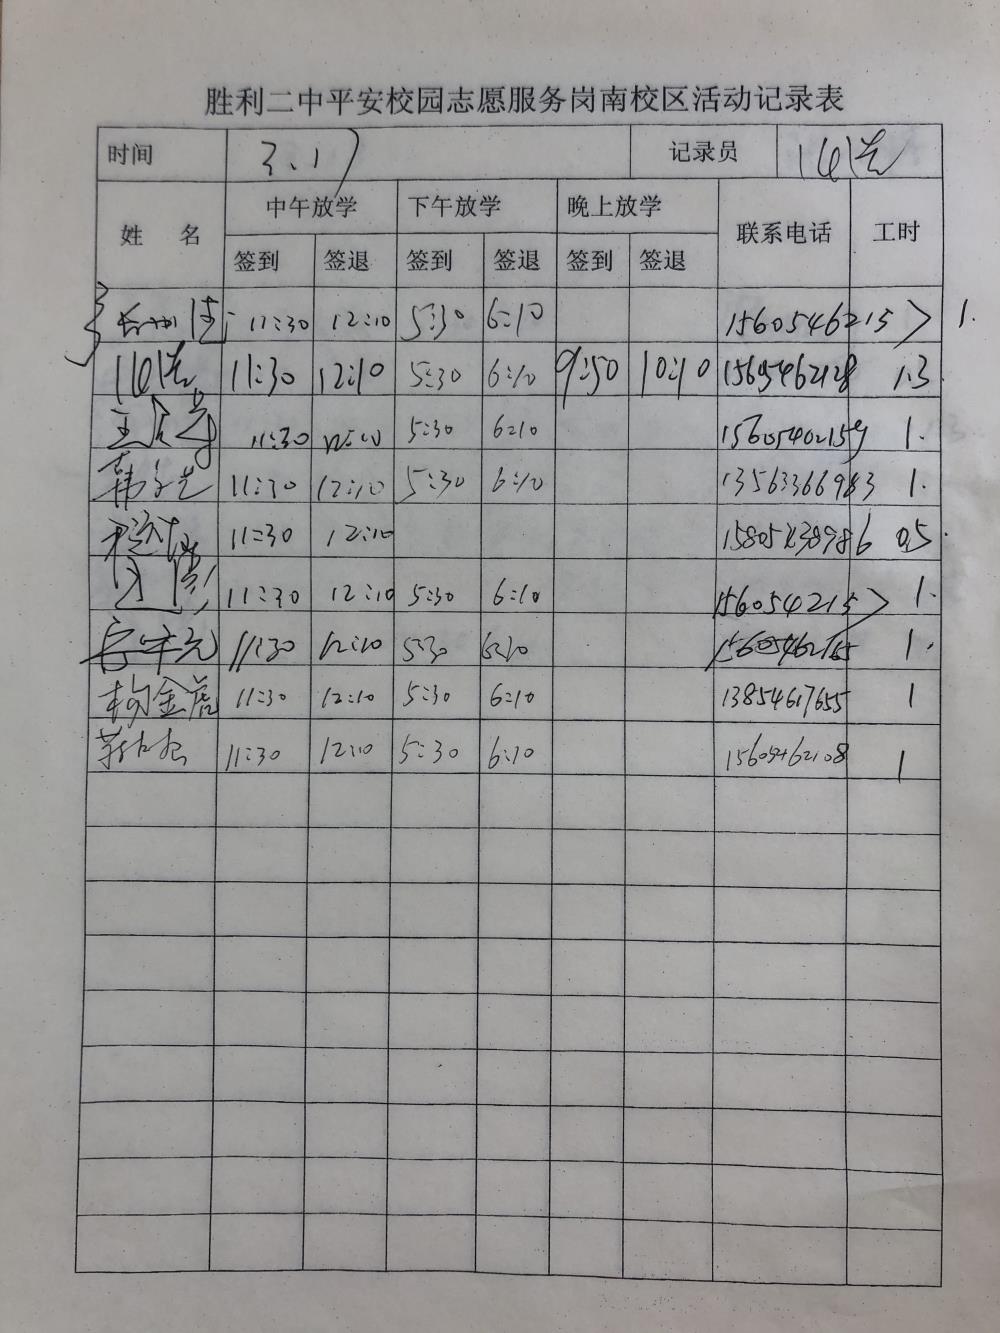 胜利二中平安校园志愿服务岗南校区活动记录表
时间 3.17 记录员
姓 名 中午放学 下午放学 晚上放学 联系电话 工时
签到 签退 签到 签退 签到 签退
11:30 12:10 5:30 6:10 15605462157 1.
11:30 12:10 5:30 6:10 9:50 10:10 15605462128 1.3
11:30 12:10 5:30 6:10 1.
11:30 12:10 5:30 6:10 13563366983 1.
11:30 12:10 0.5
11:30 12:10 5:30 6:10 1.
11:30 12:10 5:30 6:10 15605462165 1.
杨金虎 11:30 12:10 5:30 6:10 13854617655 1
11:30 12:10 5:30 6:10 15605462108 1